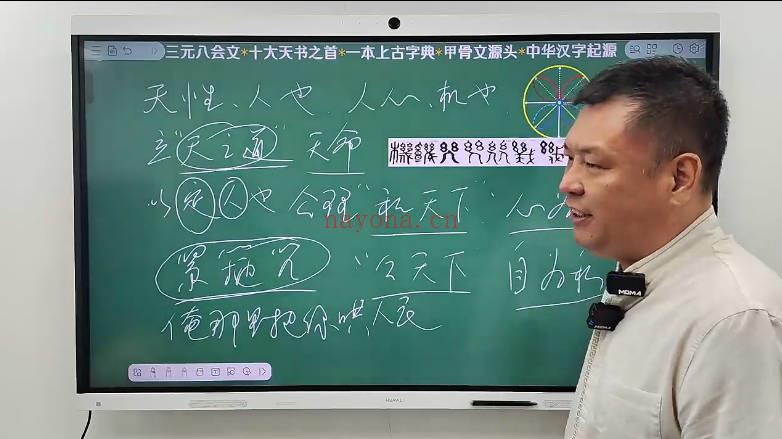 三元八会文*十大天书之首*一本上古字典*甲骨文源头*中华汉字起源
天性、人也 人心、机也
立"天之道" 天命
以定人也 公理"私天下" 人心为
nayona.cn
紧箍咒 "公天下 自为私
俺那里把你哄人民
MOMA
MOMA
HUAWEI